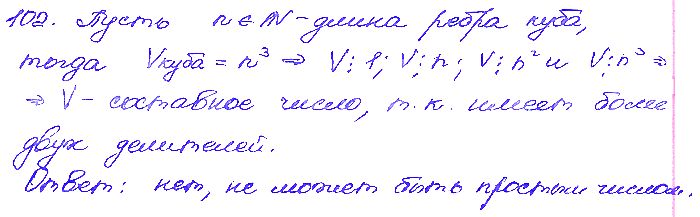 102. Пусть n ∈ N - длина ребра куба,
тогда Vкуба = n³ ⇒ V⋮1; V⋮n; V⋮n² и V⋮n³ ⇒
⇒ V - составное число, т.к. имеет более
двух делителей.
Ответ: нет, не может быть простым числом.